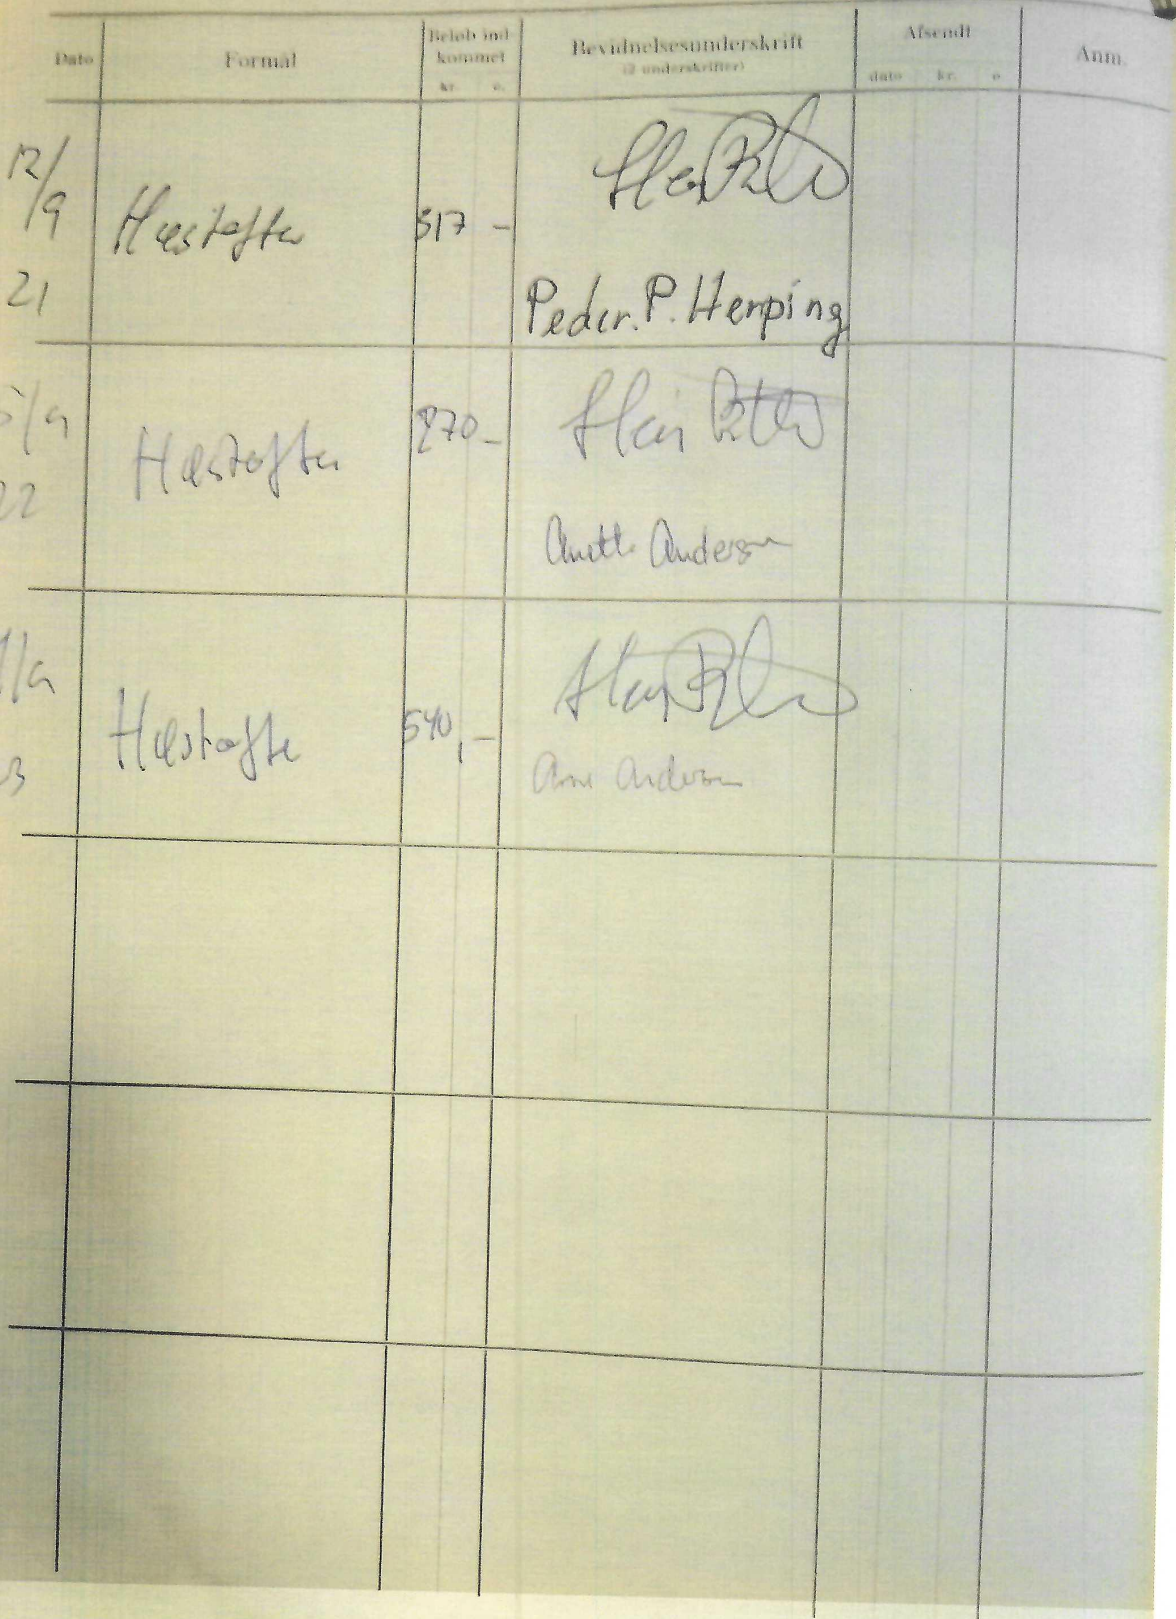 Dato Formål Beløb ind-
kommet
kr. ø. Bevidnelsesunderskrift
(2 underskrifter) Afsendt
dato kr. ø Anm.
12/
/9
21 Høstoffer 317 -
Peder. P. Hemping
22 Høstoffer 270 -
Anette Andersen
Høstoffer 540,-
Arne Andersen